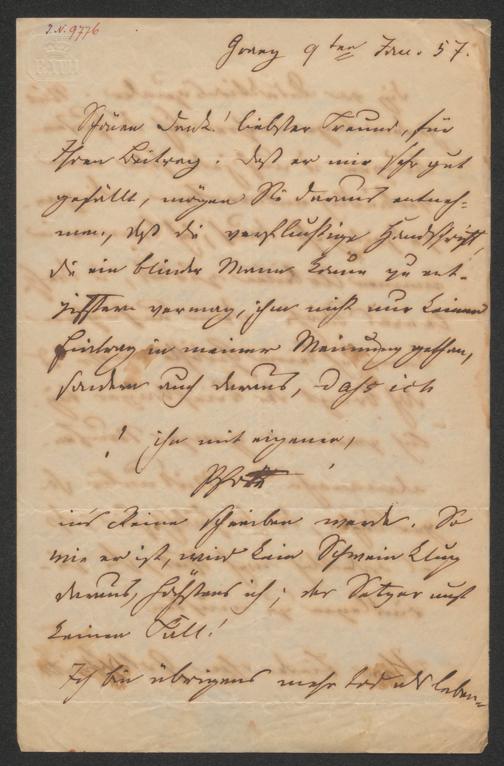 I.N. 9776
BATH
9ten Jan. 57.
Schönen Dank! liebster Freund, für
Ihren Beitrag. Daß er mir sehr gut
gefällt, mögen Sie daraus entneh-
men, daß die verfluchtige Handschrift,
die ein blinder Mann kaum zu ent-
ziffern vermag, ihm nicht nur keinen
Eintrag in meiner Meinung gethan,
sondern auch daraus, dass ich
! ihn mit eigener,
Pfote
in's Reine schreiben werde. So
wie er ist, wird kein Schwein klug
daraus, höchstens ich; der Setzer auf
keinen Fall!
Ich bin übrigens mehr tod als leben-